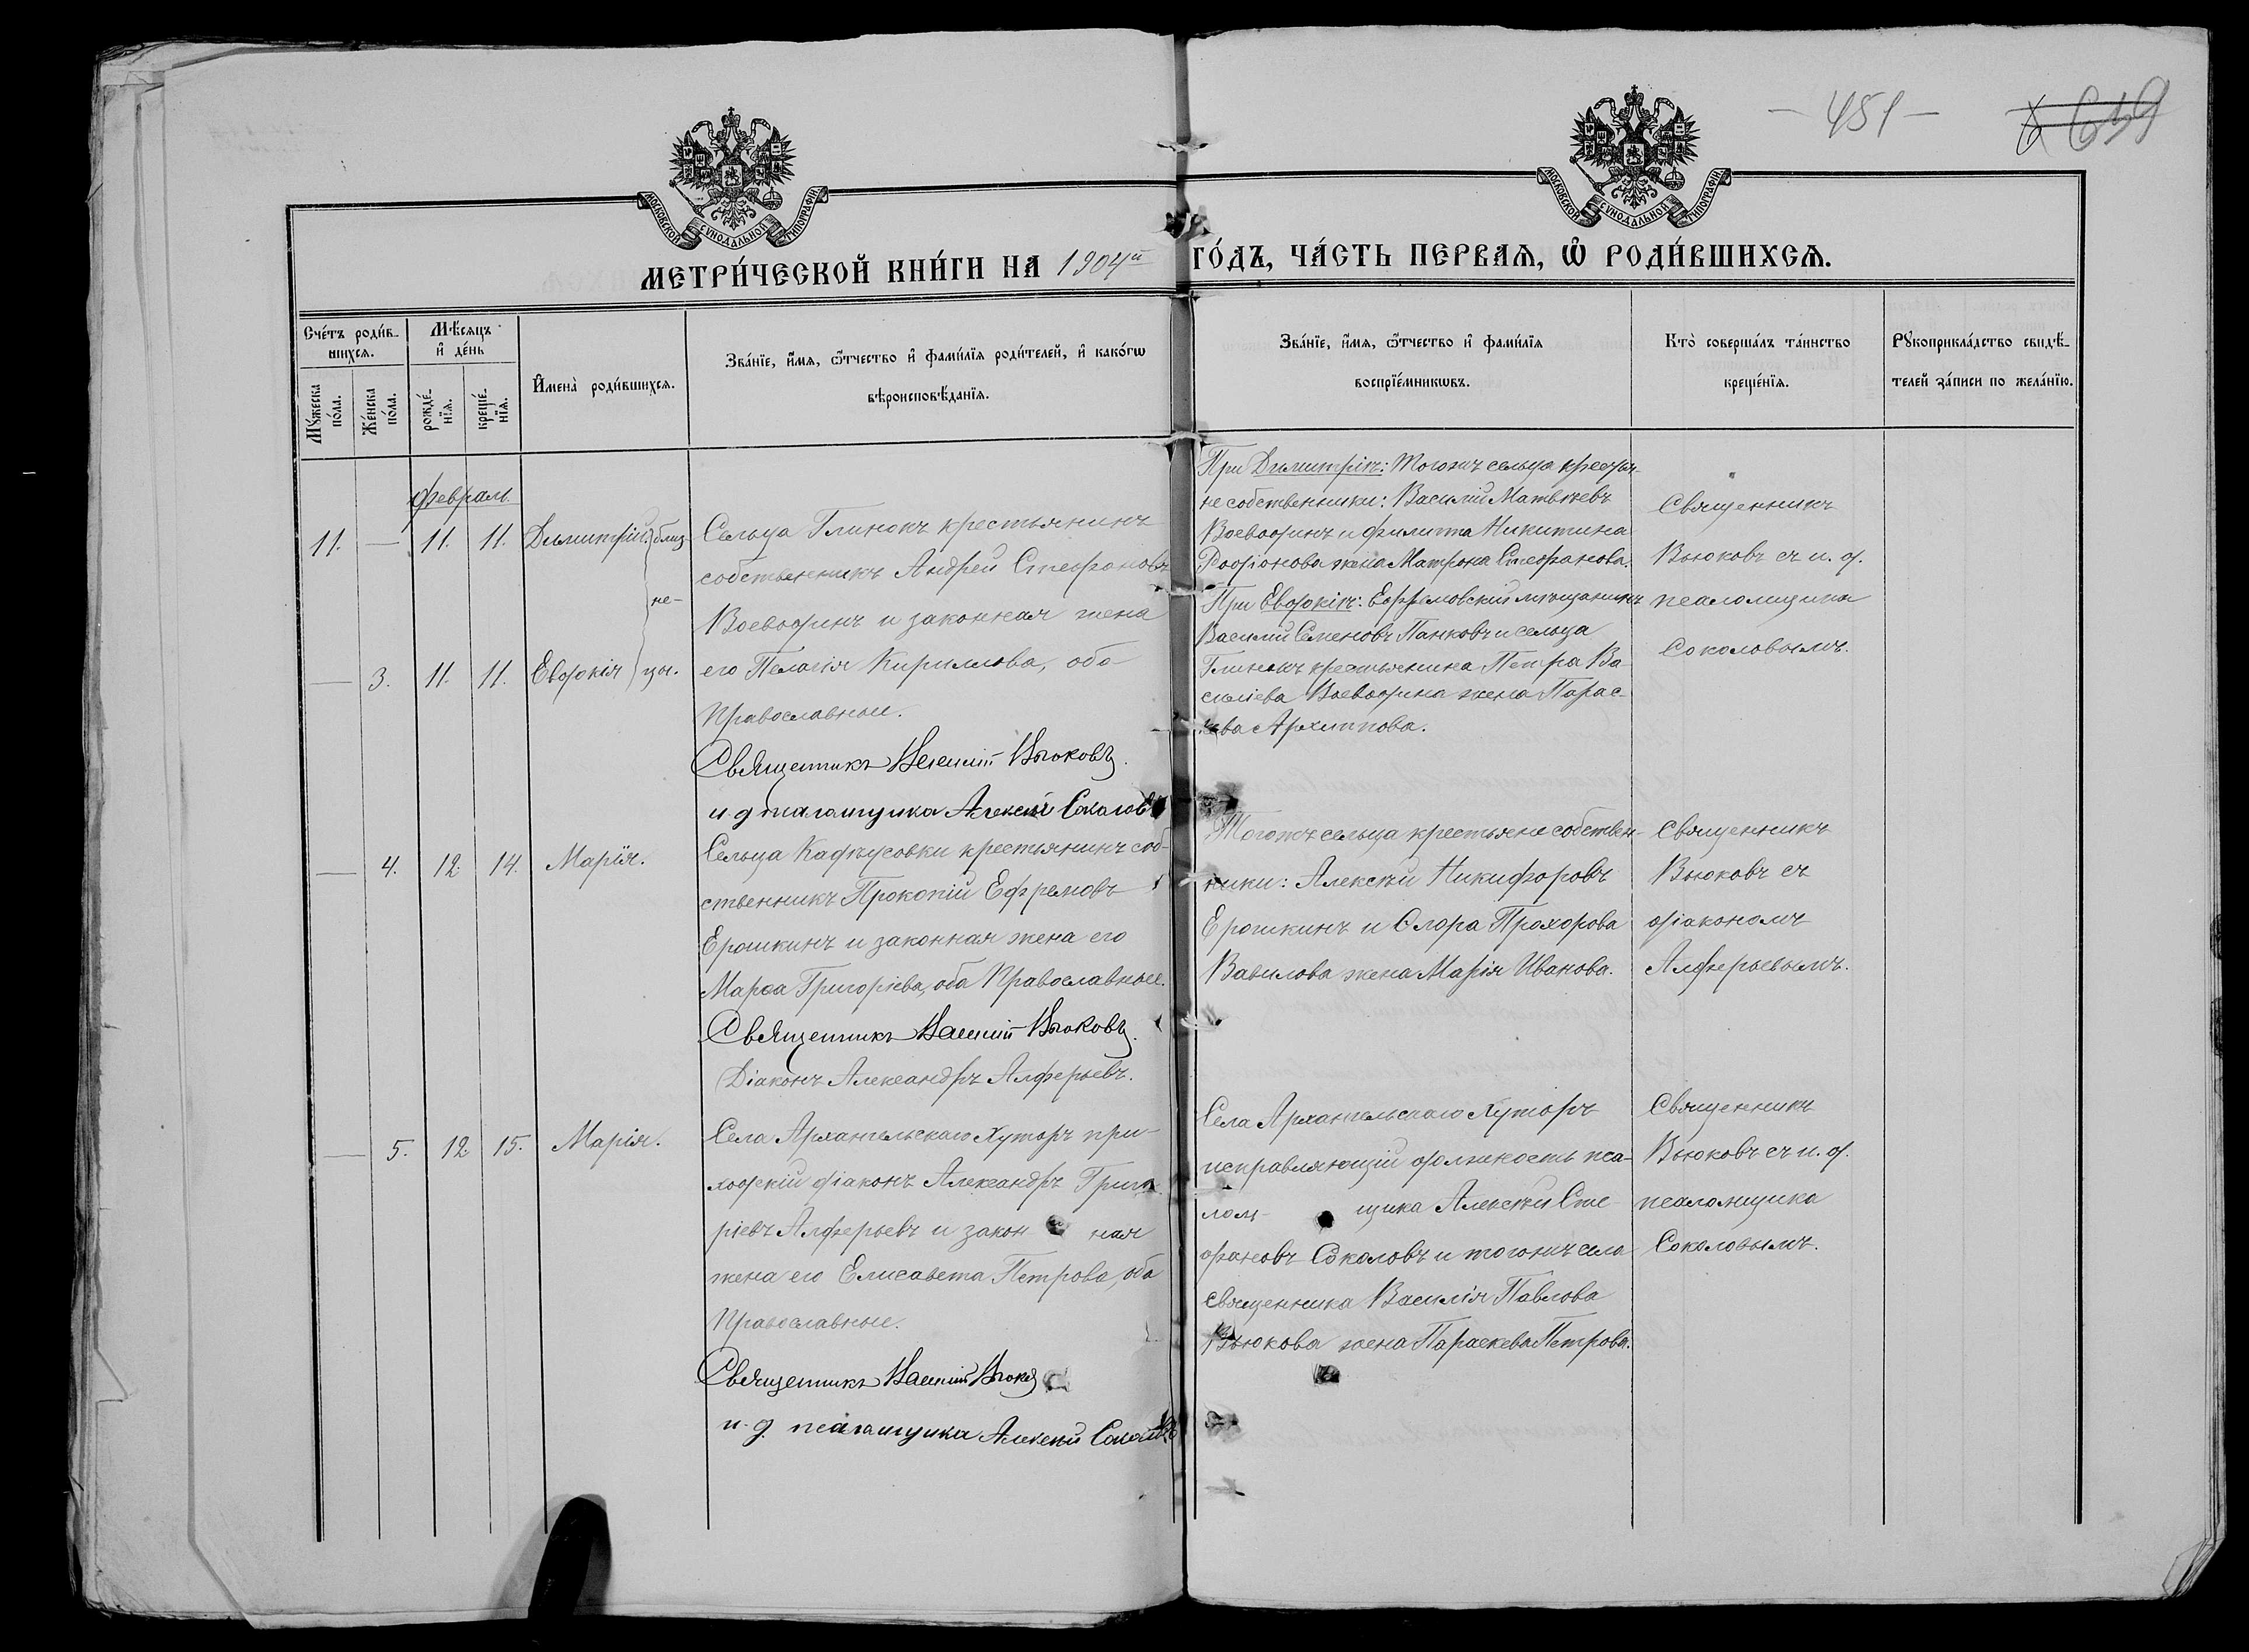 - 451 -
639
МОСКОВСКОЙ СѴНОДАЛЬНОЙ ТИПОГРАФІИ.
МОСКОВСКОЙ СѴНОДАЛЬНОЙ ТИПОГРАФІИ.
МЕТРИ́ЧЕСКОЙ КНИ́ГИ НА 1904й ГО́ДЪ, ЧА́СТЬ ПЕРВАѦ, Ѡ҆ РОДИ́ВШИХСѦ.
Сче́тъ роди́в-
шихсѧ.
Мѣ́сѧцъ
и҆ де́нь
Мꙋ́жеска
по́ла.
Же́нска
по́ла.
рожде́-
нїѧ.
креще́-
нїѧ.
И҆мена̀ роди́вшихсѧ.
Зва́нїе, и҆́мѧ, ѻ҆́тчество и҆ фами́лїѧ роди́телей, и҆ како́гѡ
вѣроисповѣ́данїѧ.
Зва́нїе, и҆́мѧ, ѻ҆́тчество и҆ фами́лїѧ
воспрїе́мникѡвъ.
Кто̀ соверша́лъ та́инство
креще́нїѧ.
Рꙋкоприкла́дство свидѣ́-
телей за́писи по жела́нїю.
февраль
11. — 11. 11. Димитрій близ-
не-
— 3. 11. 11. Евдокія цы.
Сельца Глинокъ крестьянинъ
собственникъ Андрей Стефановъ
Воеводинъ и законная жена
его Пелагія Кириллова, оба
Православные.
Священникъ Василій Вьюковъ.
и. д. псаломщика Алексѣй Соколовъ
При Димитріѣ: Тогожъ сельца крестья-
не собственники: Василий Матвѣевъ
Воеводинъ и Филиппа Никитина
Родіонова жена Матрона Стефанова.
При Евдокіѣ: Ефремовскій мѣщанинъ
Василий Семеновъ Панковъ и сельца
Глинокъ крестьянина Петра Ва-
силіева Воеводина жена Парас-
кева Архиппова.
Священникъ
Вьюковъ съ и. д.
псаломщика
Соколовымъ.
— 4. 12. 14. Марія.
Сельца Каднусовки крестьянинъ соб-
ственникъ Прокопій Ефремовъ
Ерошкинъ и законная жена его
Марѳа Григоріева, оба Православные.
Священникъ Василій Вьюковъ.
Діаконъ Александръ Алферьевъ.
Тогожъ сельца крестьяне собствен-
ники: Алексѣй Никифоровъ
Ерошкинъ и Флора Прохорова
Вавилова жена Марія Иванова.
Священникъ
Вьюковъ съ
діакономъ
Алферьевымъ.
— 5. 12. 15. Марія.
Села Архангельскаго Хуторъ при-
ходскій діаконъ Александръ Григо-
ріевъ Алферьевъ и закон ная
жена его Елисавета Петрова, оба
Православные.
Священникъ Василій Вьюковъ
и. д. псаломщика Алексѣй Соколовъ
Села Архангельскаго Хуторъ
исправляющій должность пса-
лом- щика Алексѣй Сте-
фановъ Соколовъ и тогожъ села
священника Василія Павлова
Вьюкова жена Параскева Петрова.
Священникъ
Вьюковъ съ и. д.
псаломщика
Соколовымъ.